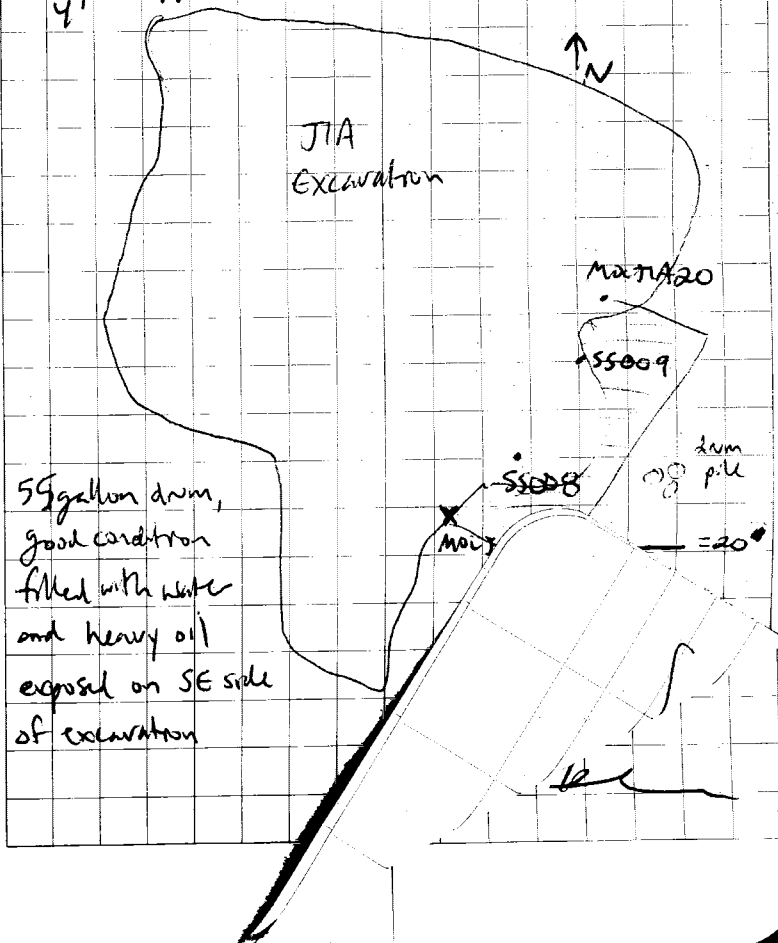 N
J1A
Excavation
MOCJ1A20
SS009
drum
pile
SS008
= 20'
55 gallon drum,
good condition
filled with water
and heavy oil
exposed on SE side
of excavation